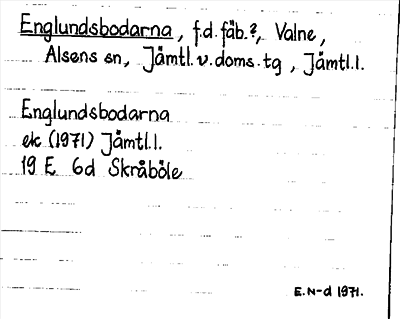 Englundsbodarna, f.d. fäb.?, Valne,
Alsens sn, Jämtl. v. doms. tg, Jämtl.l.
Englundsbodarna
ek (1971) Jämtl.l.
19 E 6d Skråböle
E. N-d 1971.